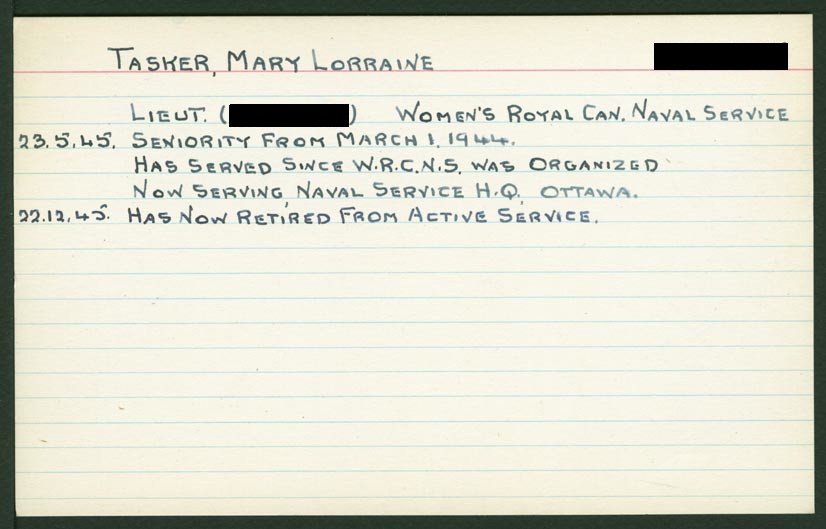 TASKER, MARY LORRAINE
LIEUT. ( ) WOMEN'S ROYAL CAN. NAVAL SERVICE
23.5.45. SENIORITY FROM MARCH 1, 1944.
HAS SERVED SINCE W.R.C.N.S. WAS ORGANIZED
NOW SERVING, NAVAL SERVICE H.Q. OTTAWA.
22.12.45. HAS NOW RETIRED FROM ACTIVE SERVICE.